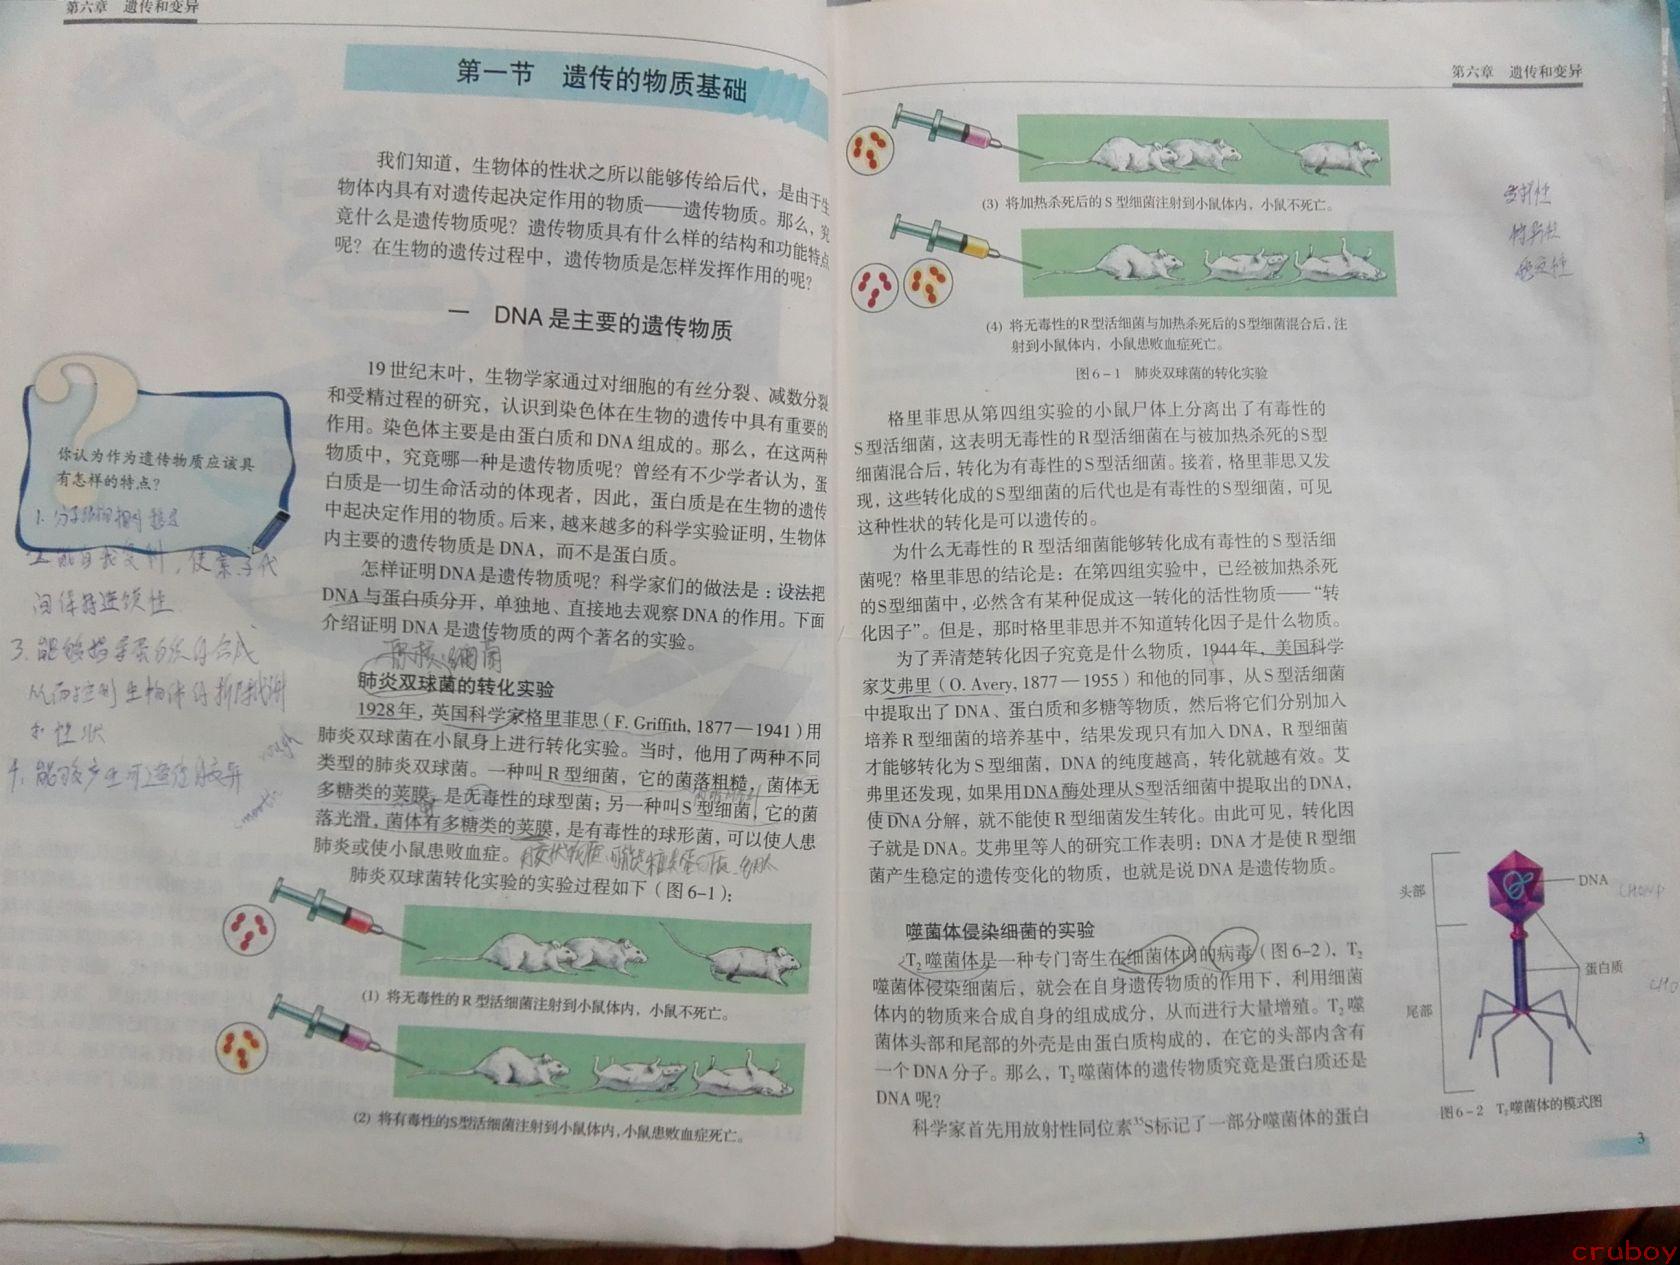 第六章 遗传和变异
第一节 遗传的物质基础
我们知道，生物体的性状之所以能够传给后代，是由于生
物体内具有对遗传起决定作用的物质——遗传物质。那么，究
竟什么是遗传物质呢？遗传物质具有什么样的结构和功能特点
呢？在生物的遗传过程中，遗传物质是怎样发挥作用的呢？
一 DNA是主要的遗传物质
19世纪末叶，生物学家通过对细胞的有丝分裂、减数分裂
和受精过程的研究，认识到染色体在生物的遗传中具有重要的
作用。染色体主要是由蛋白质和DNA组成的。那么，在这两种
物质中，究竟哪一种是遗传物质呢？曾经有不少学者认为，蛋
白质是一切生命活动的体现者，因此，蛋白质是在生物的遗传
中起决定作用的物质。后来，越来越多的科学实验证明，生物体
内主要的遗传物质是DNA，而不是蛋白质。
怎样证明DNA是遗传物质呢？科学家们的做法是：设法把
DNA与蛋白质分开，单独地、直接地去观察DNA的作用。下面
介绍证明DNA是遗传物质的两个著名的实验。
你认为作为遗传物质应该具
有怎样的特点？
1. 分子结构相对稳定
2. 能自我复制，使亲子代
间保持连续性
3. 能够指导蛋白质的合成
从而控制生物体的新陈代谢
和性状
4. 能够产生可遗传的变异
rough
smooth
原核 细菌
肺炎双球菌的转化实验
1928年，英国科学家格里菲思（F. Griffith, 1877—1941）用
肺炎双球菌在小鼠身上进行转化实验。当时，他用了两种不同
类型的肺炎双球菌。一种叫R型细菌，它的菌落粗糙，菌体无
多糖类的荚膜，是无毒性的球型菌；另一种叫S型细菌，它的菌
落光滑，菌体有多糖类的荚膜，是有毒性的球形菌，可以使人患
肺炎或使小鼠患败血症。
肺炎双球菌转化实验的实验过程如下（图6-1）：
(1) 将无毒性的R型活细菌注射到小鼠体内，小鼠不死亡。
(2) 将有毒性的S型活细菌注射到小鼠体内，小鼠患败血症死亡。
第六章 遗传和变异
(3) 将加热杀死后的S型细菌注射到小鼠体内，小鼠不死亡。
(4) 将无毒性的R型活细菌与加热杀死后的S型细菌混合后，注
射到小鼠体内，小鼠患败血症死亡。
图6-1 肺炎双球菌的转化实验
多样性
特异性
稳定性
格里菲思从第四组实验的小鼠尸体上分离出了有毒性的
S型活细菌，这表明无毒性的R型活细菌在与被加热杀死的S型
细菌混合后，转化为有毒性的S型活细菌。接着，格里菲思又发
现，这些转化成的S型细菌的后代也是有毒性的S型细菌，可见
这种性状的转化是可以遗传的。
为什么无毒性的R型活细菌能够转化成有毒性的S型活细
菌呢？格里菲思的结论是：在第四组实验中，已经被加热杀死
的S型细菌中，必然含有某种促成这一转化的活性物质——“转
化因子”。但是，那时格里菲思并不知道转化因子是什么物质。
为了弄清楚转化因子究竟是什么物质，1944年，美国科学
家艾弗里（O. Avery, 1877—1955）和他的同事，从S型活细菌
中提取出了DNA、蛋白质和多糖等物质，然后将它们分别加入
培养R型细菌的培养基中，结果发现只有加入DNA，R型细菌
才能够转化为S型细菌，DNA的纯度越高，转化就越有效。艾
弗里还发现，如果用DNA酶处理从S型活细菌中提取出的DNA，
使DNA分解，就不能使R型细菌发生转化。由此可见，转化因
子就是DNA。艾弗里等人的研究工作表明：DNA才是使R型细
菌产生稳定的遗传变化的物质，也就是说DNA是遗传物质。
噬菌体侵染细菌的实验
T₂噬菌体是一种专门寄生在细菌体内的病毒（图6-2），T₂
噬菌体侵染细菌后，就会在自身遗传物质的作用下，利用细菌
体内的物质来合成自身的组成成分，从而进行大量增殖。T₂噬
菌体头部和尾部的外壳是由蛋白质构成的，在它的头部内含有
一个DNA分子。那么，T₂噬菌体的遗传物质究竟是蛋白质还是
DNA呢？
科学家首先用放射性同位素³⁵S标记了一部分噬菌体的蛋白
头部
DNA
CHONP
蛋白质
尾部
图6-2 T₂噬菌体的模式图
3
cruboy